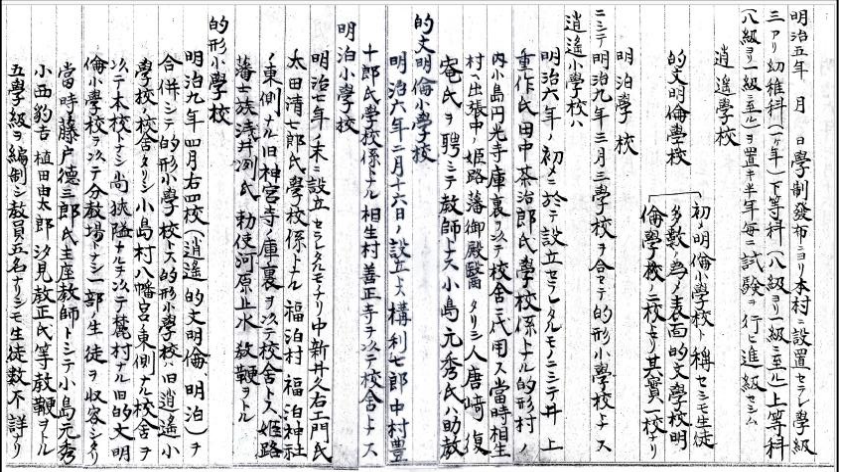 明治五年　月　日學制發布ニヨリ本村ニ設置セラレ學級
三アリ幼稚科(一ヶ年)下等科(八級ヨリ一級ニ至ル)上等科
(八級ヨリ一級ニ至ル)ヲ置キ半年每ニ試驗ヲ行ヒ進級セシム
逍遥學校
的文明倫學校
初メ明倫小學校ト稱セシモ生徒
多數ノ爲メ表面的文學校明
倫學校ノ二校トナリ其實一校ナリ
明泊學校
ニシテ明治九年三月三學校ヲ合セテ的形小學校トス
逍遥小學校ハ
明治六年ノ初メニ於テ設立セラレタルモノニシテ井上
重作氏田中茶治郎氏學校係トナル的形村ノ
内小島円光寺庫裏ヲ以テ校舍ニ代用ス當時相生
村ヘ出張中ノ姫路藩御殿醫タリシ人唐﨑復
庵氏ヲ聘シテ教師トス小島元秀氏ハ助教
的文明倫小學校
明治六年二月十六日ノ設立ス構利七郎中村豊
十郎氏學校係トナル相生村善正寺ヲ以テ校舍トス
明泊小學校
明治七年ノ末ニ設立セラレタルモノナリ中新井久右エ門氏
太田清七郎氏學校係トナル福泊村福泊神社
ノ東側ナル旧神宮寺ノ庫裏ヲ以テ校舍トス姫路
藩士族浅井渕氏　勅使河原止水教鞭ヲトル
的形小學校
明治九年四月右四校(逍遥的文明倫、明泊)ヲ
合併シテ的形小學校トス的形小學校ハ旧逍遥小
學校校舍タリシ小島村八幡宮東側ナル校舍ヲ
以テ本校トナシ尚狹隘ナルヲ以テ麓村ナル旧的文明
倫小學校ヲ以テ分教場トナシ一部ノ生徒ヲ收容シタリ
當時ハ藤戸德三郎氏主座教師トシテ小島元秀
小西豹吉　植田由太郎　汐見教正氏等教鞭ヲトル
五學級ヲ編制シ教員五名ナリシモ生徒數不詳ナリ